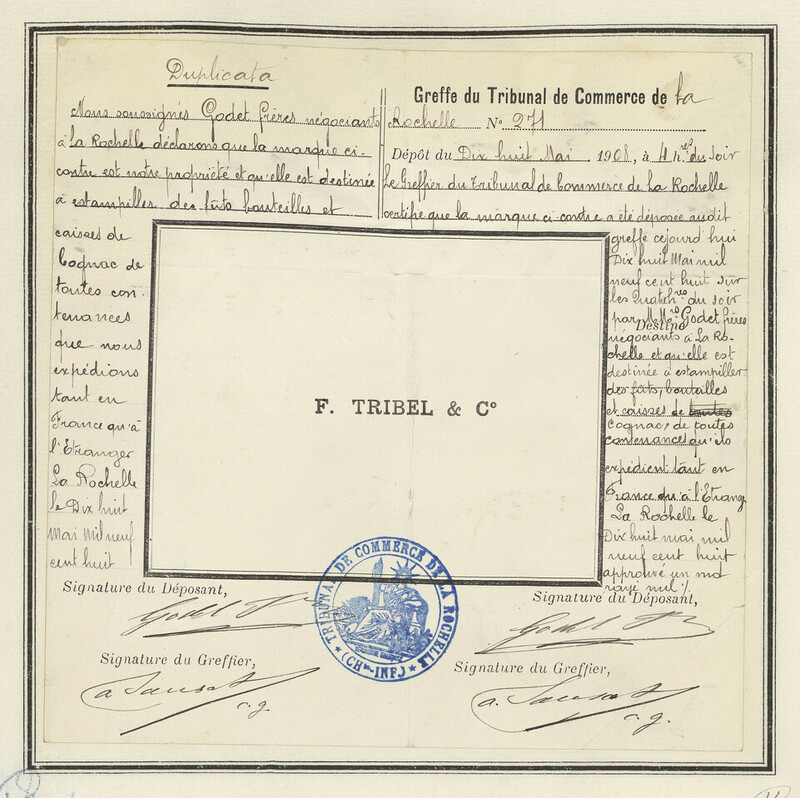 Duplicata
Nous soussignés Godet frères négociants
à La Rochelle déclarons que la marque ci-
contre est notre propriété et qu'elle est destinée
à estampiller des fûts bouteilles et
caisses de
Cognac de
toutes con-
tenances
que nous
expédions
tant en
France qu'à
l'Etranger
La Rochelle
le Dix huit
Mai Mil neuf
cent huit
Signature du Déposant,
Godet Fres
Signature du Greffier,
c. g.
Greffe du Tribunal de Commerce de La
Rochelle N° 271
Dépôt du Dix huit Mai 1908, à 4 hres du soir
Le Greffier du Tribunal de Commerce de La Rochelle
certifie que la marque ci-contre a été déposée audit
greffe cejourd'hui
Dix huit Mai mil
neuf cent huit sur
les quatre hres du soir
par MMrs Godet frères
Destiné
négociants à La Ro-
chelle et qu'elle est
destinée à estampiller
des fûts, bouteilles
et caisses de toutes
Cognac, de toutes
contenances qu'ils
expédient tant en
France qu'à l'Etrang
La Rochelle le
Dix huit mai mil
neuf cent huit
approuvé un mo
rayé nul %
Signature du Déposant,
Godet Fres
Signature du Greffier,
c. g.
F. TRIBEL & Co
TRIBUNAL DE COMMERCE DE LA ROCHELLE
(CHte-INF.)